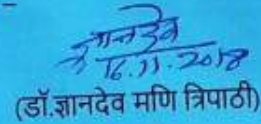 ज्ञानदेव
16.11.2018
(डॉ.ज्ञानदेव मणि त्रिपाठी)